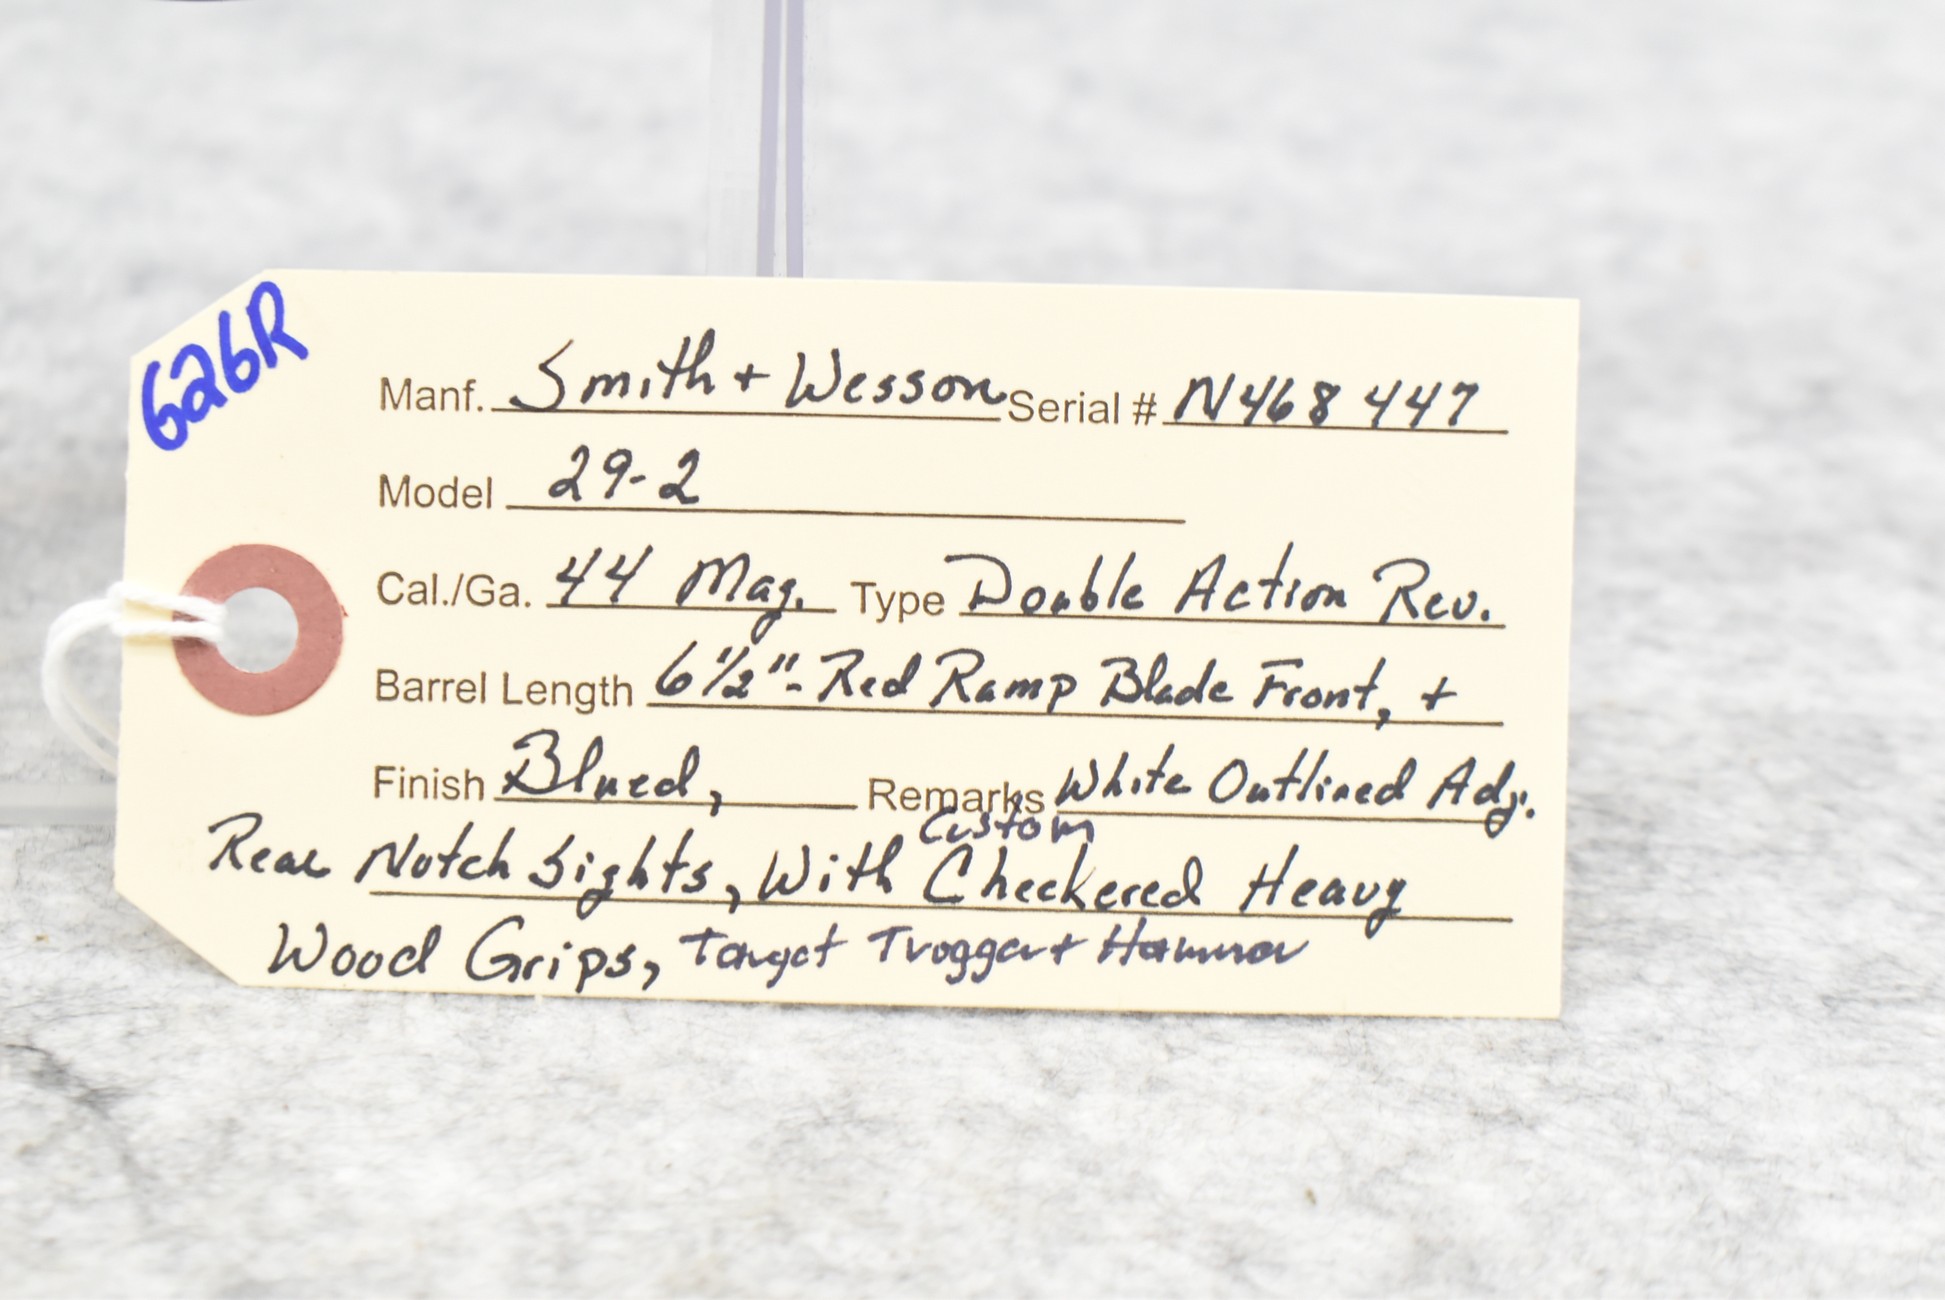 626R
Manf. Smith + Wesson Serial # N468 447
Model 29-2
Cal./Ga. 44 Mag. Type Double Action Rev.
Barrel Length 6 1/2" - Red Ramp Blade Front, +
Finish Blued, Remarks White Outlined Adj.
Custom
Rear Notch Sights, With Checkered Heavy
Wood Grips, Target Trigger + Hammer